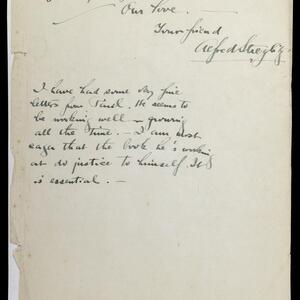 Our love.
Your friend
Alfred Stieglitz
I have had some very fine
letters from He seems to
be working well — growing
all the time. — I am most
eager that the book he's working
at do justice to himself. It
is essential. —